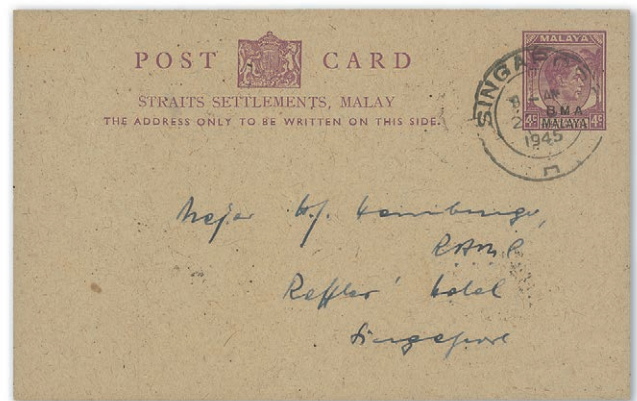 POST CARD
STRAITS SETTLEMENTS, MALAY
THE ADDRESS ONLY TO BE WRITTEN ON THIS SIDE.
MALAYA
BMA
MALAYA
4c 4c
SINGAP
1945
Major
Raffles' Hotel
Singapore